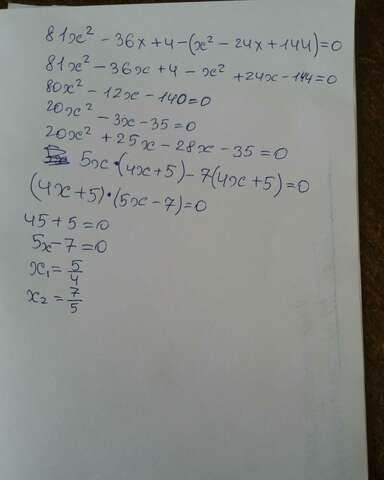 81x² - 36x + 4 - (x² - 24x + 144) = 0
81x² - 36x + 4 - x² + 24x - 144 = 0
80x² - 12x - 140 = 0
20x² - 3x - 35 = 0
20x² + 25x - 28x - 35 = 0
5x • (4x + 5) - 7(4x + 5) = 0
(4x + 5) • (5x - 7) = 0
45 + 5 = 0
5x - 7 = 0
x₁ = 5/4
x₂ = 7/5